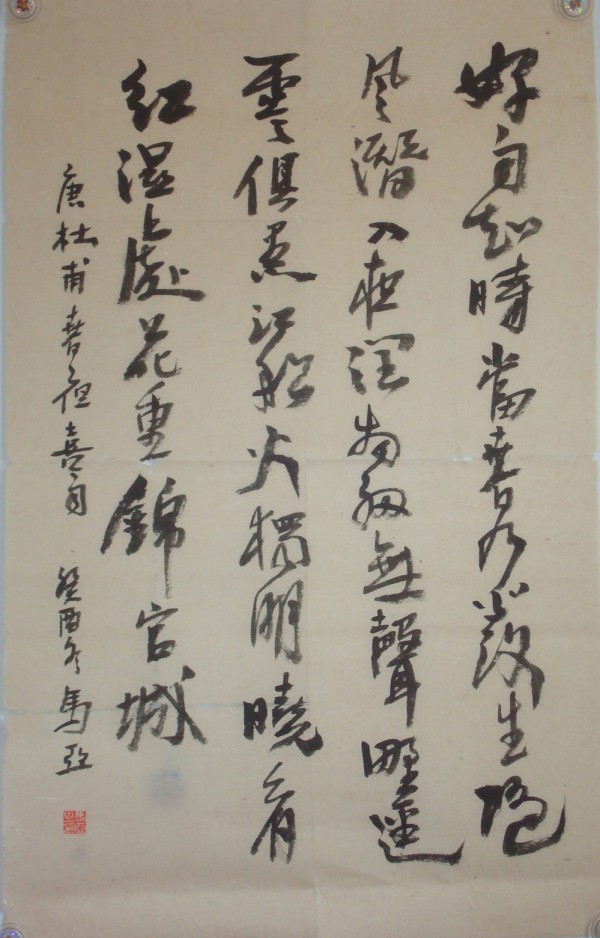 好雨知時當春乃發生隨
風潛入夜潤物細無聲野逕
雲俱黑江船火獨明曉看
紅湿處花重錦官城
唐杜甫春夜喜雨 癸酉冬 馬亞